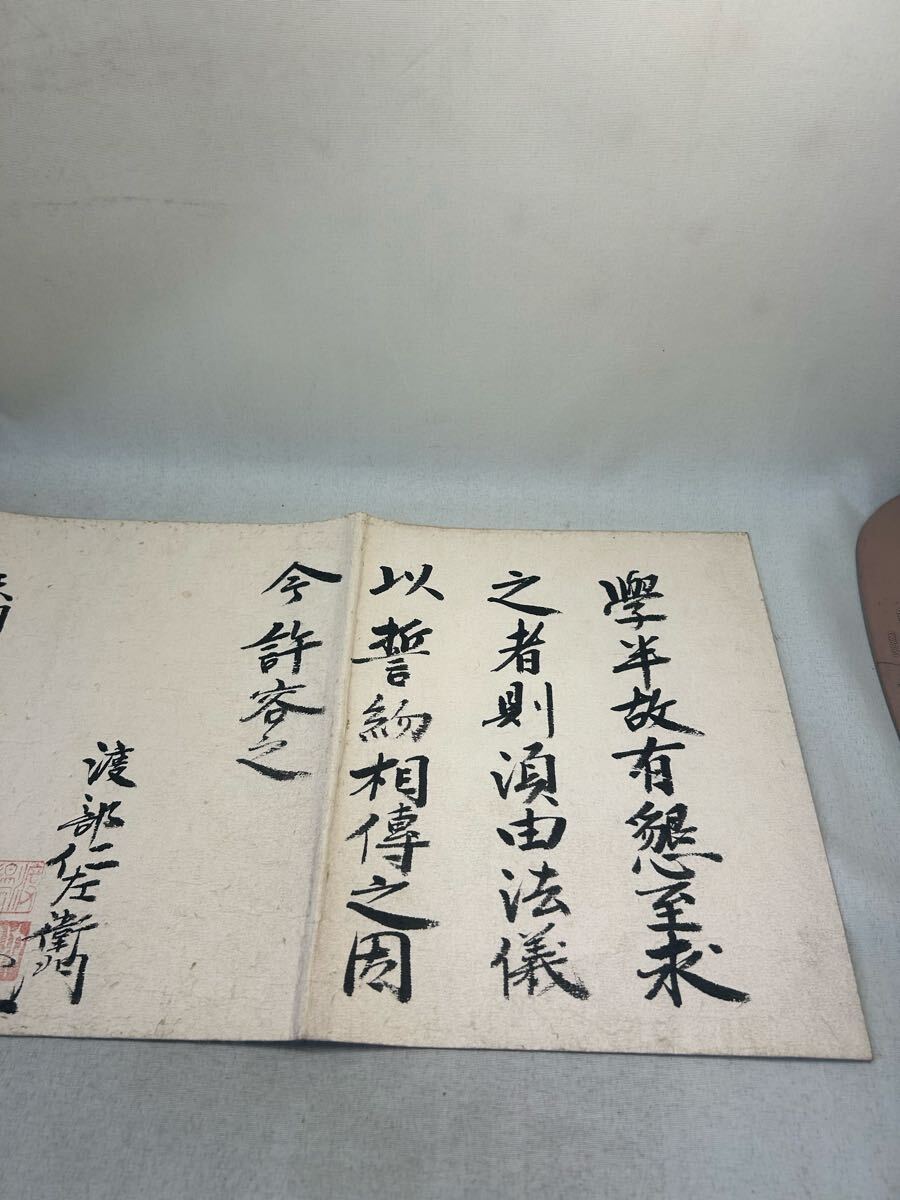 學半故有懇至求
之者則須由法儀
以誓約相傳之因
今許容之
渡部仁左衛門